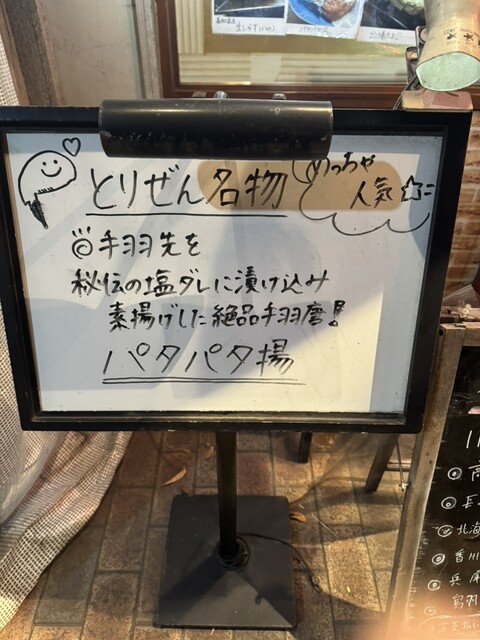 とりぜん名物
めっちゃ
人気
◎手羽先を
秘伝の塩ダレに漬け込み
素揚げした絶品手羽唐!
パタパタ揚
北海
香川
兵庫